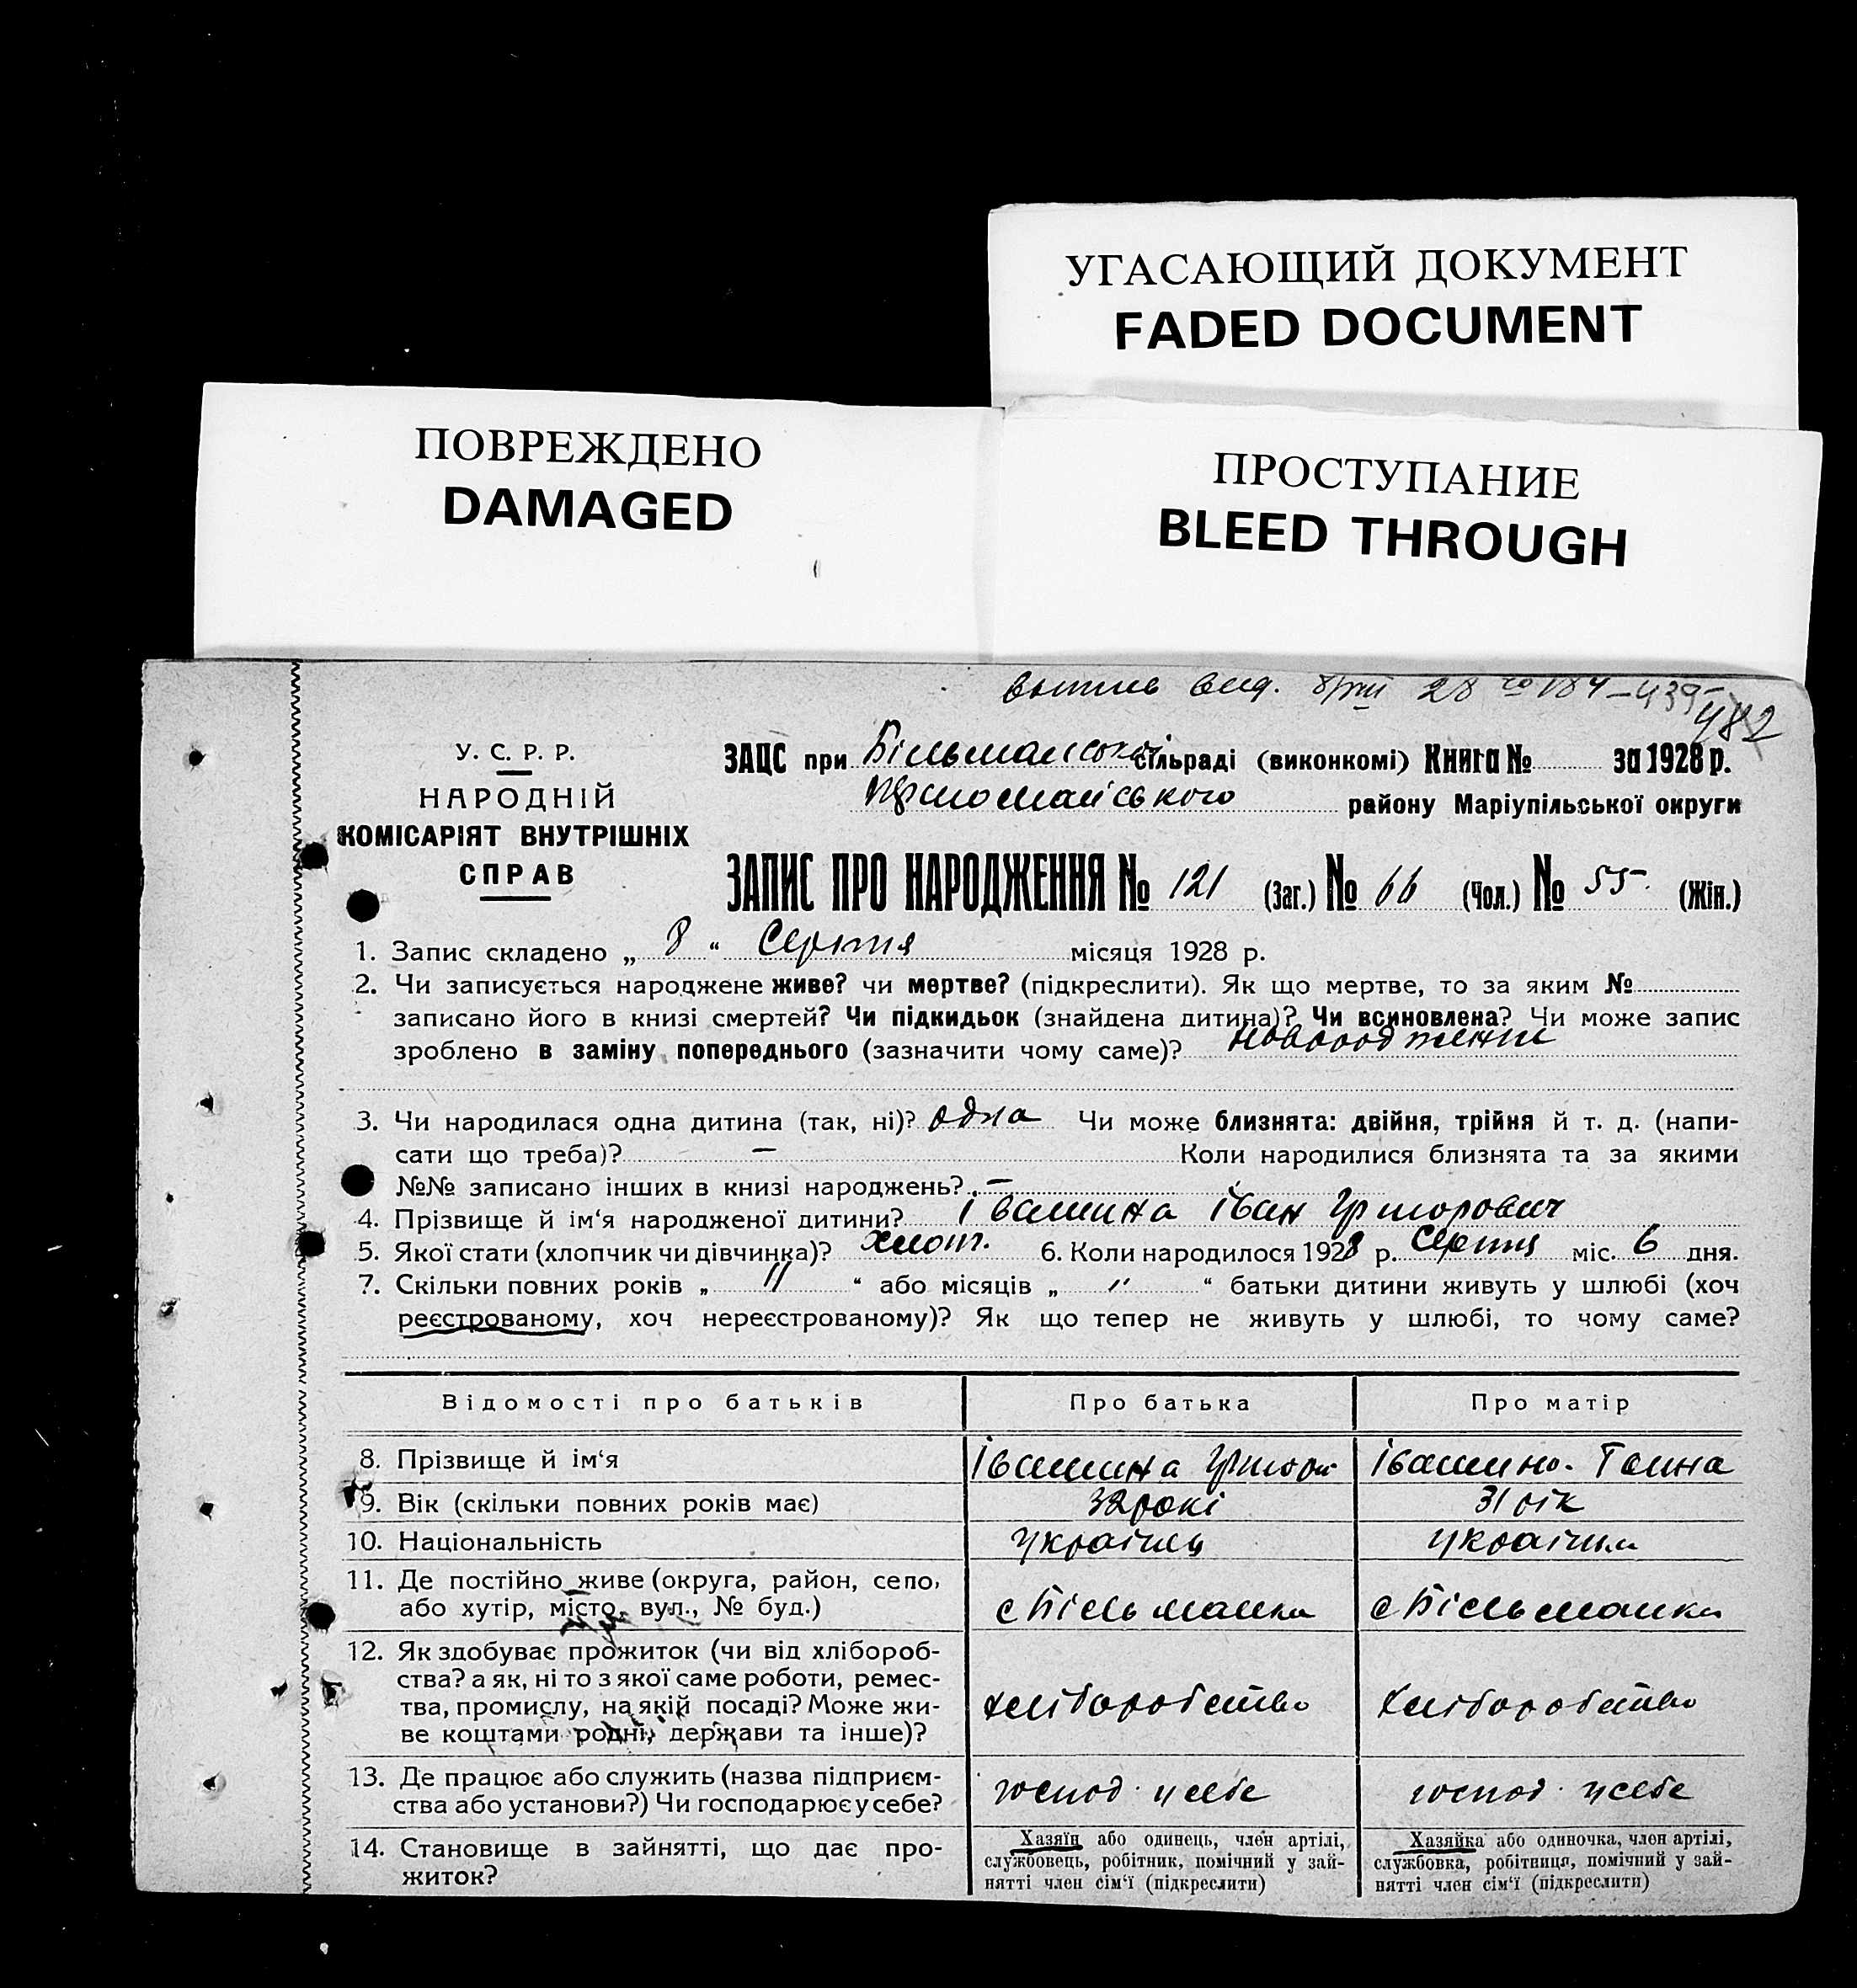 УГАСАЮЩИЙ ДОКУМЕНТ
FADED DOCUMENT
ПОВРЕЖДЕНО
DAMAGED
ПРОСТУПАНИЕ
BLEED THROUGH
482
У. С. Р. Р.
НАРОДНІЙ
КОМІСАРІЯТ ВНУТРІШНІХ
СПРАВ
ЗАЦС при Більманській сільраді (виконкомі) Книга № за 1928 р.
району Маріупільської округи
ЗАПИС ПРО НАРОДЖЕННЯ № 121 (Заг.) № 66 (Чол.) № 55 (Жін.)
1. Запис складено „ 8 “ Серпня місяця 1928 р.
2. Чи записується народжене живе? чи мертве? (підкреслити). Як що мертве, то за яким №
записано його в книзі смертей? Чи підкидьок (знайдена дитина)? Чи всиновлена? Чи може запис
зроблено в заміну попереднього (зазначити чому саме)?
3. Чи народилася одна дитина (так, ні)? одна Чи може близнята: двійня, трійня й т. д. (напи-
сати що треба)? — Коли народилися близнята та за якими
№№ записано інших в книзі народжень? —
4. Прізвище й ім'я народженої дитини? Івашина Іван Григорович
5. Якої стати (хлопчик чи дівчинка)? хлоп. 6. Коли народилося 1928 р. Серпня міс. 6 дня.
7. Скільки повних років „ 11 “ або місяців „ " “ батьки дитини живуть у шлюбі (хоч
реєстрованому, хоч нереєстрованому)? Як що тепер не живуть у шлюбі, то чому саме?
Відомості про батьків Про батька Про матір
8. Прізвище й ім‘я Івашина Григорій Івашина Ганна
9. Вік (скільки повних років має) 32 рокі 31 рік
10. Національність українець українка
11. Де постійно живе (округа, район, село,
або хутір, місто, вул., № буд.) с Більманка с Більманка
12. Як здобуває прожиток (чи від хлібороб-
ства? а як, ні то з якої саме роботи, ремес-
тва, промислу, на якій посаді? Може жи-
ве коштами родні, держави та інше)? хліборобство хліборобство
13. Де працює або служить (назва підприєм-
ства або установи?) Чи господарює у себе? господ. у себе господ. у себе
14. Становище в зайнятті, що дає про-
житок?
Хазяїн або одинець, член артілі,
службовець, робітник, помічний у зай-
нятті член сім‘ї (підкреслити)
Хазяйка або одиночка, член артілі,
службовка, робітниця, помічний у зай-
нятті член сім‘ї (підкреслити)